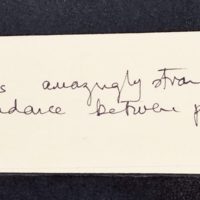 s amazingly stran
ndance between p